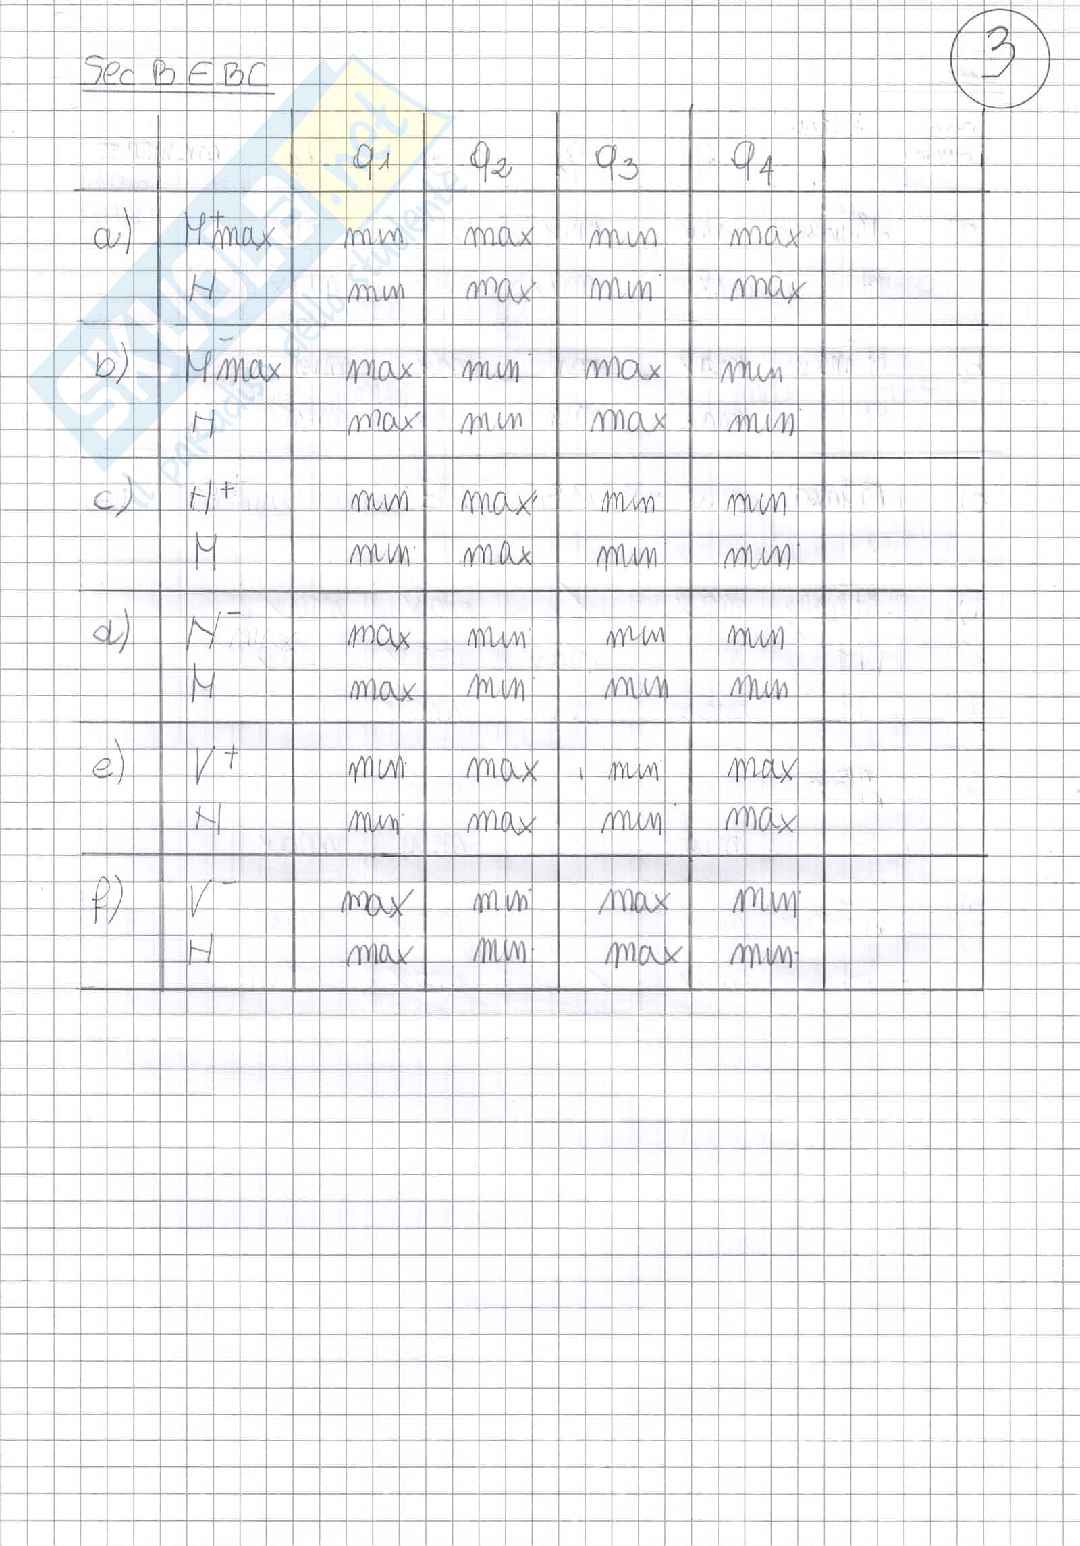 3
Sec B E BC
q1 q2 q3 q4
a) M+max min max min max
H min max min max
b) M-max max min max min
H max min max min
c) H+ min max min min
M min max min min
d) N- max min min min
M max min min min
e) V+ min max min max
H min max min max
f) V- max min max min
H max min max min
SKUOLA.net
il paradiso dello studente